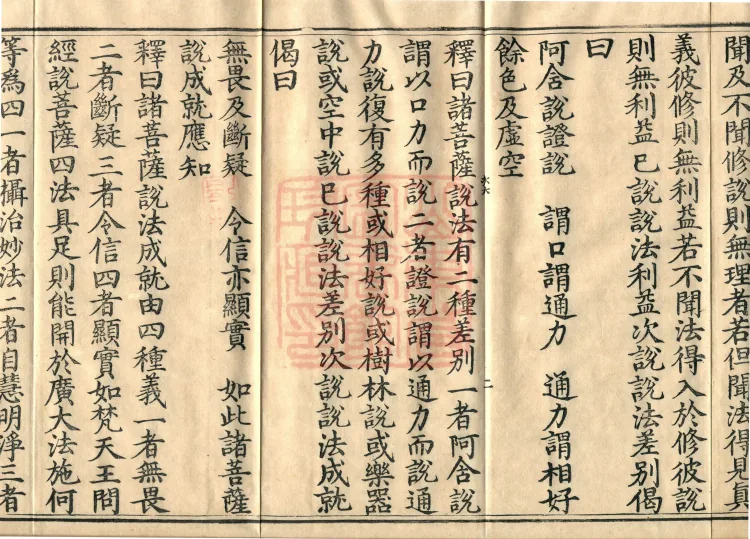 聞及不聞修說則無理者若但聞法得見真
義彼修則無利益若不聞法得入於修彼說
則無利益已說說法利益次說說法差別偈
曰
阿含說證說　謂口謂通力　通力謂相好
餘色及虛空
釋曰諸菩薩說法有二種差別一者阿含說
謂以口力而說二者證說謂以通力而說通
力說復有多種或相好說或樹林說或樂器
說或空中說已說說法差別次說說法成就
偈曰
無畏及斷疑　令信亦顯實　如此諸菩薩
說成就應知
釋曰諸菩薩說法成就由四種義一者無畏
二者斷疑三者令信四者顯實如梵天王問
經說菩薩四法具足則能開於廣大法施何
等為四一者攝治妙法二者自慧明淨三者